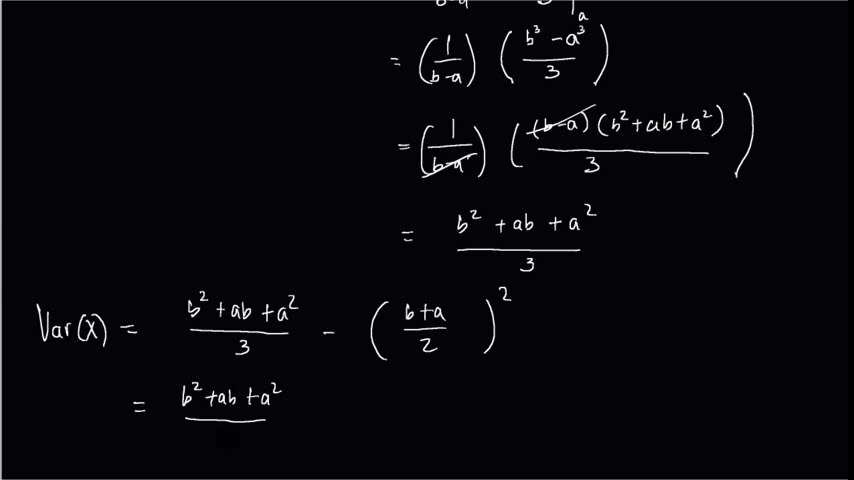 b-a 3 |a
= (1/(b-a)) ((b³ - a³)/3)
= (1/(b-a)) ((b-a)(b² + ab + a²)/3)
= (b² + ab + a²)/3
Var(X) = (b² + ab + a²)/3 - ((b+a)/2)²
= b² + ab + a²